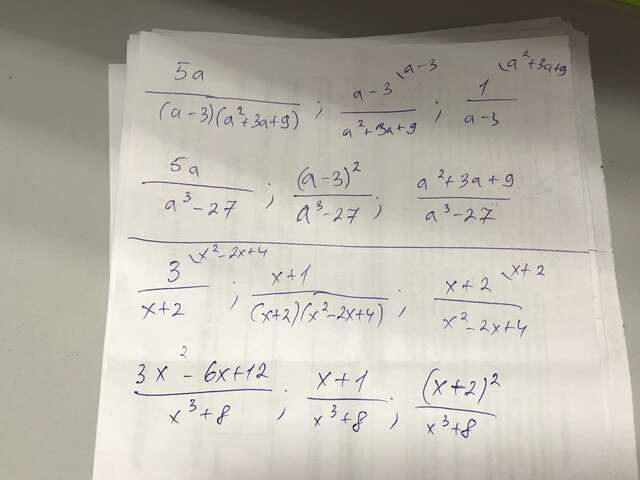 5a/((a-3)(a²+3a+9)) ; (a-3)/(a²+3a+9) ⌣a-3 ; 1/(a-3) ⌣a²+3a+9
5a/(a³-27) ; (a-3)²/(a³-27) ; (a²+3a+9)/(a³-27)
3/(x+2) ⌣x²-2x+4 ; (x+1)/((x+2)(x²-2x+4)) ; (x+2)/(x²-2x+4) ⌣x+2
(3x²-6x+12)/(x³+8) ; (x+1)/(x³+8) ; (x+2)²/(x³+8)